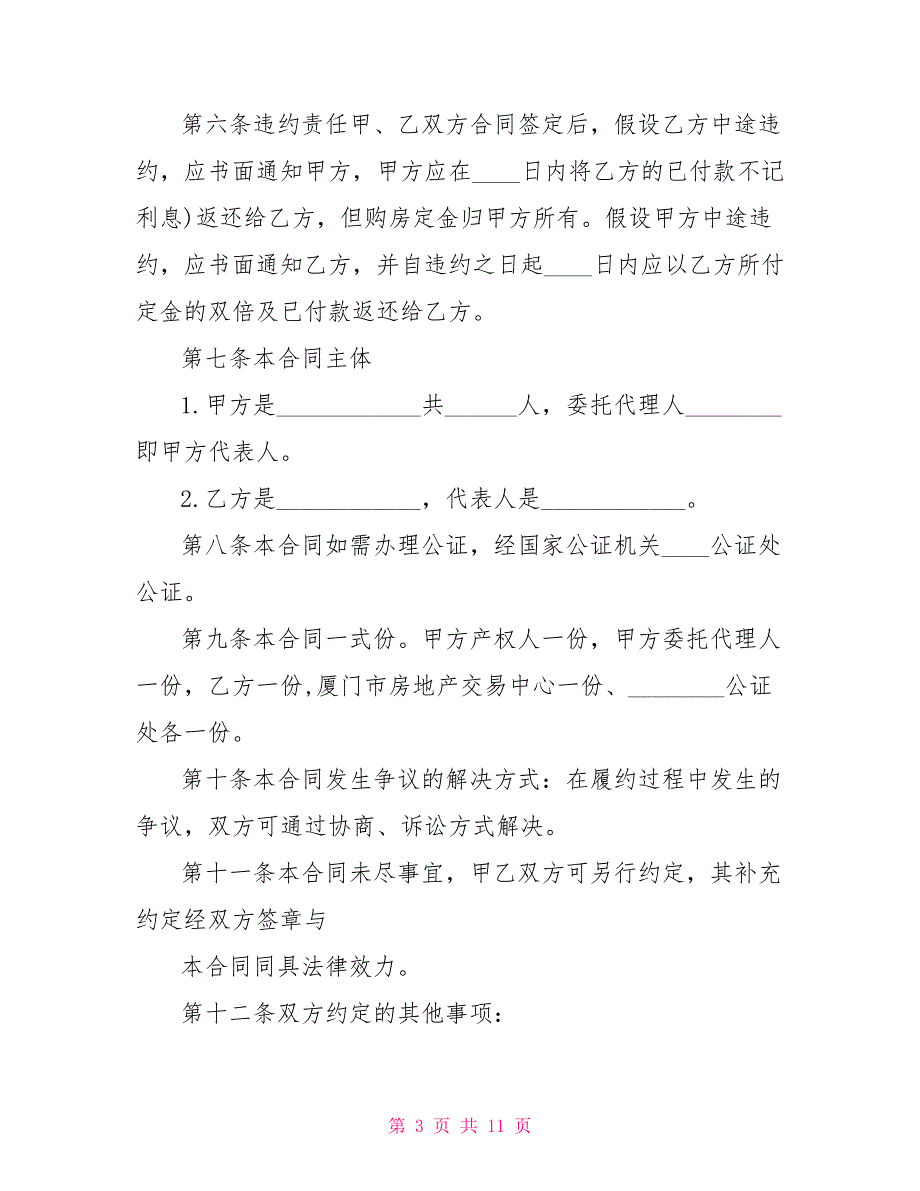 第六条违约责任甲、乙双方合同签定后，假设乙方中途违
约，应书面通知甲方，甲方应在____日内将乙方的已付款不记
利息)返还给乙方，但购房定金归甲方所有。假设甲方中途违
约，应书面通知乙方，并自违约之日起____日内应以乙方所付
定金的双倍及已付款返还给乙方。
第七条本合同主体
1.甲方是____________共______人，委托代理人________
即甲方代表人。
2.乙方是____________，代表人是____________。
第八条本合同如需办理公证，经国家公证机关____公证处
公证。
第九条本合同一式份。甲方产权人一份，甲方委托代理人
一份，乙方一份,厦门市房地产交易中心一份、________公证
处各一份。
第十条本合同发生争议的解决方式：在履约过程中发生的
争议，双方可通过协商、诉讼方式解决。
第十一条本合同未尽事宜，甲乙双方可另行约定，其补充
约定经双方签章与
本合同同具法律效力。
第十二条双方约定的其他事项：
第 3 页 共 11 页